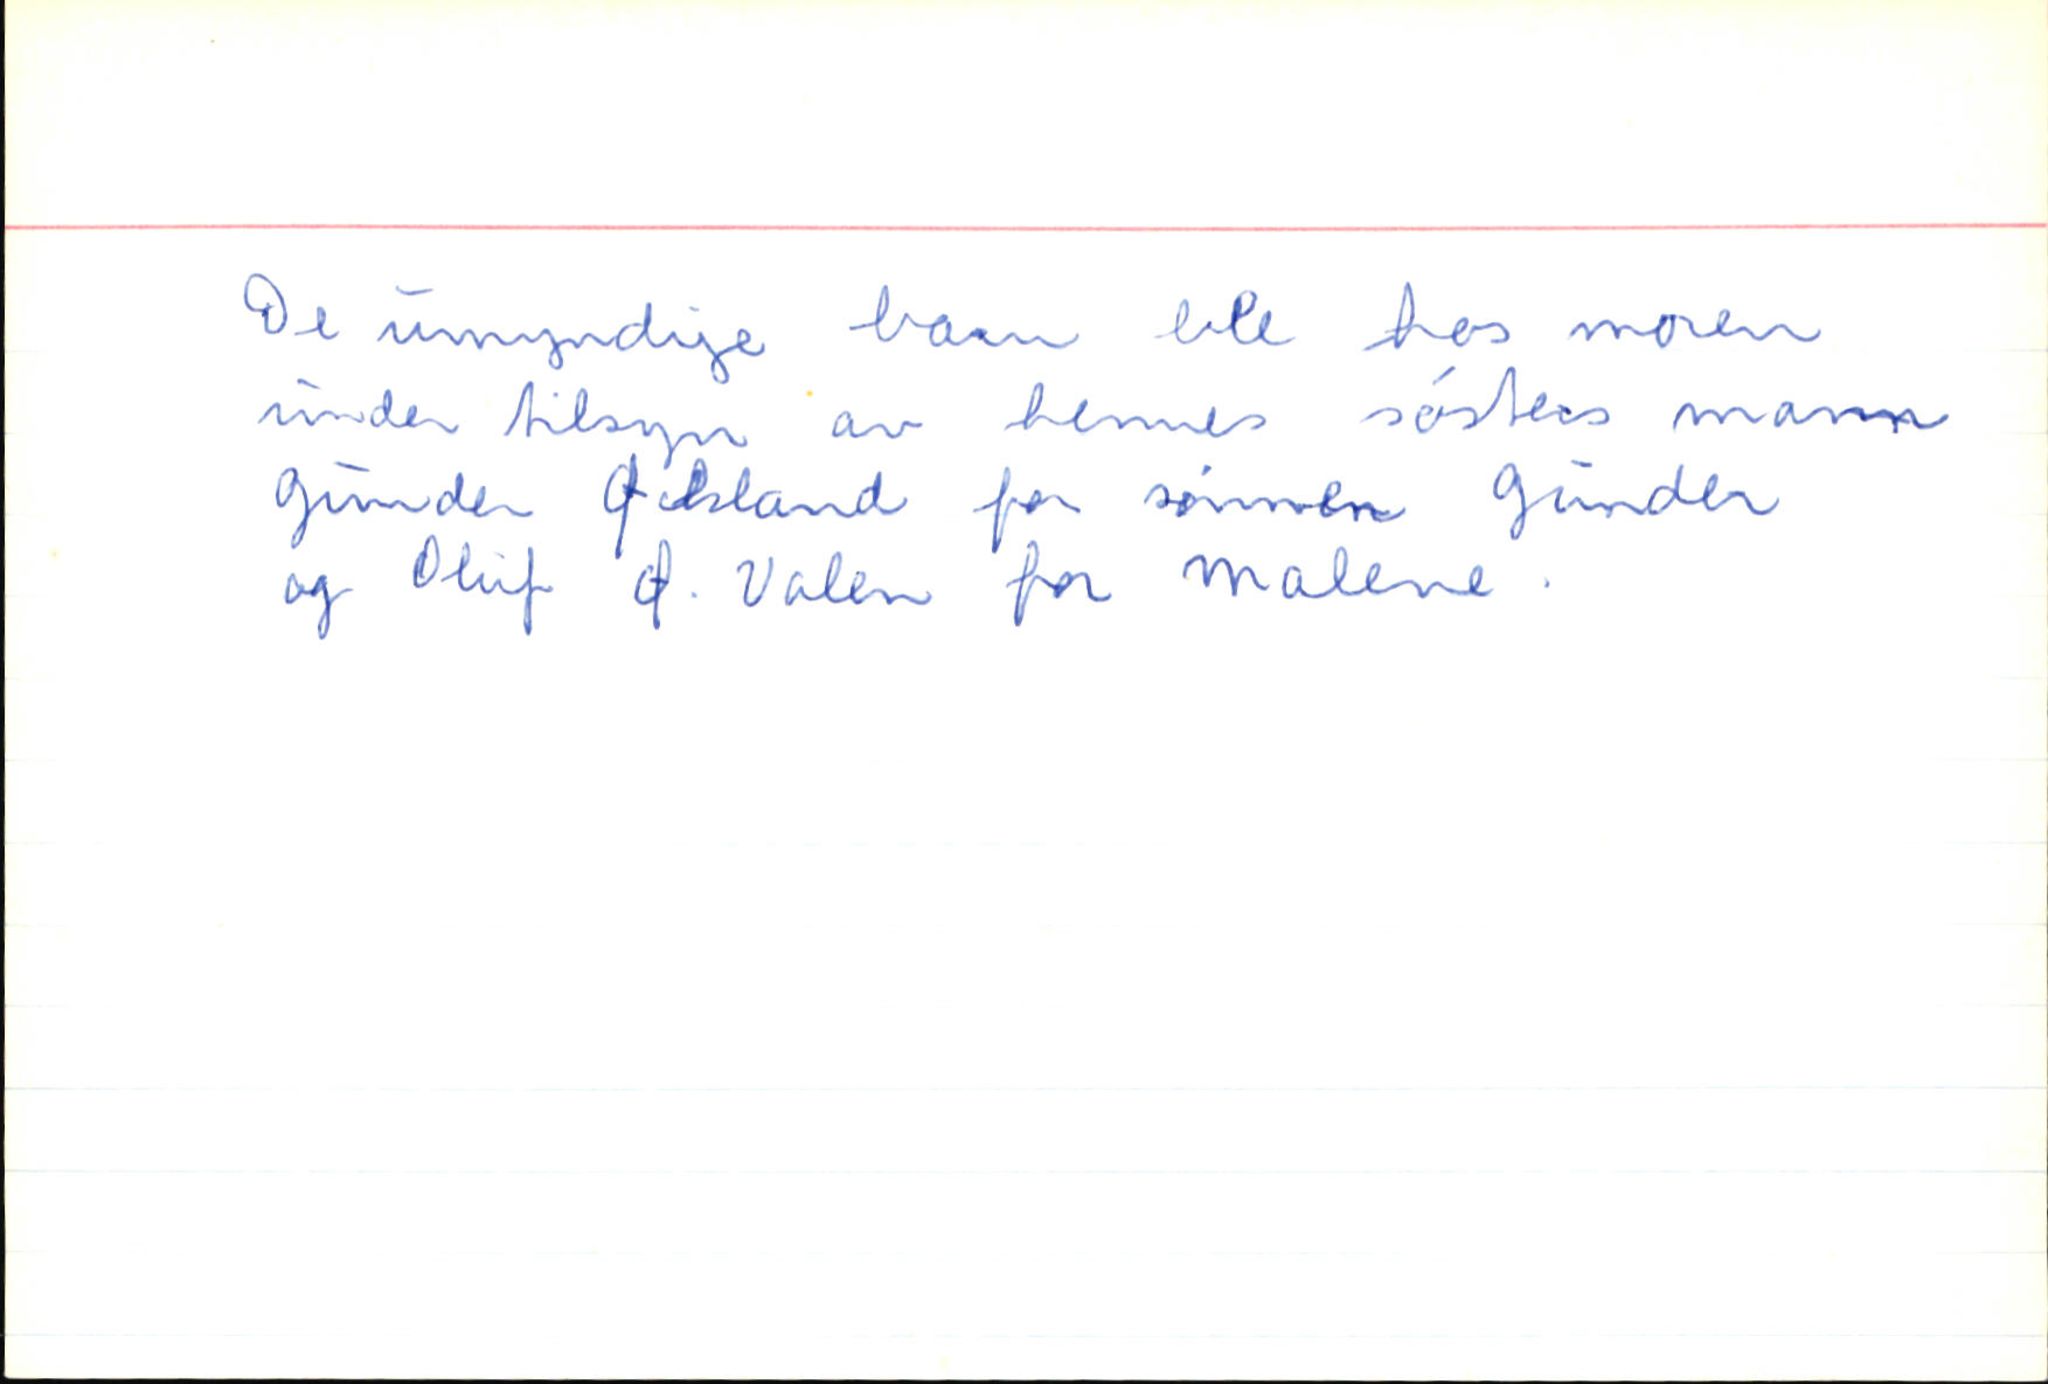 De umyndige barn ble hos moren
under tilsyn av hennes søsters mann
Gunder for sønnen Gunder
og Oluf Ø. Valen for Malene.